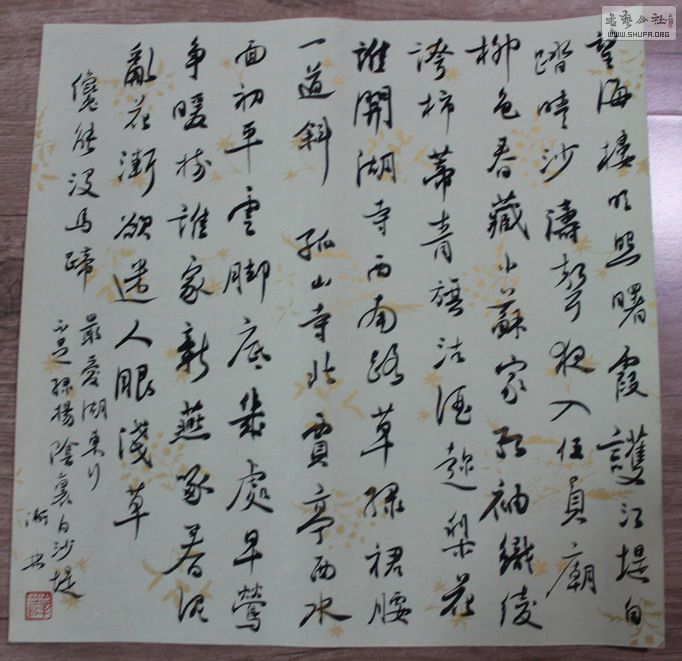 望海樓明照曙霞護江堤白
踏晴沙濤聲夜入伍員廟
柳色春藏小蘇家紅袖織綾
誇柿蒂青旗沽酒趁梨花
誰開湖寺西南路草綠裙腰
一道斜 孤山寺北賈亭西水
面初平雲脚底幾處早鶯
争暖樹誰家新燕啄春泥
亂花漸欲迷人眼淺草
纔能沒馬蹄
最愛湖東行
不足綠楊陰裏白沙堤
書藝公社
WWW.SHUFA.ORG